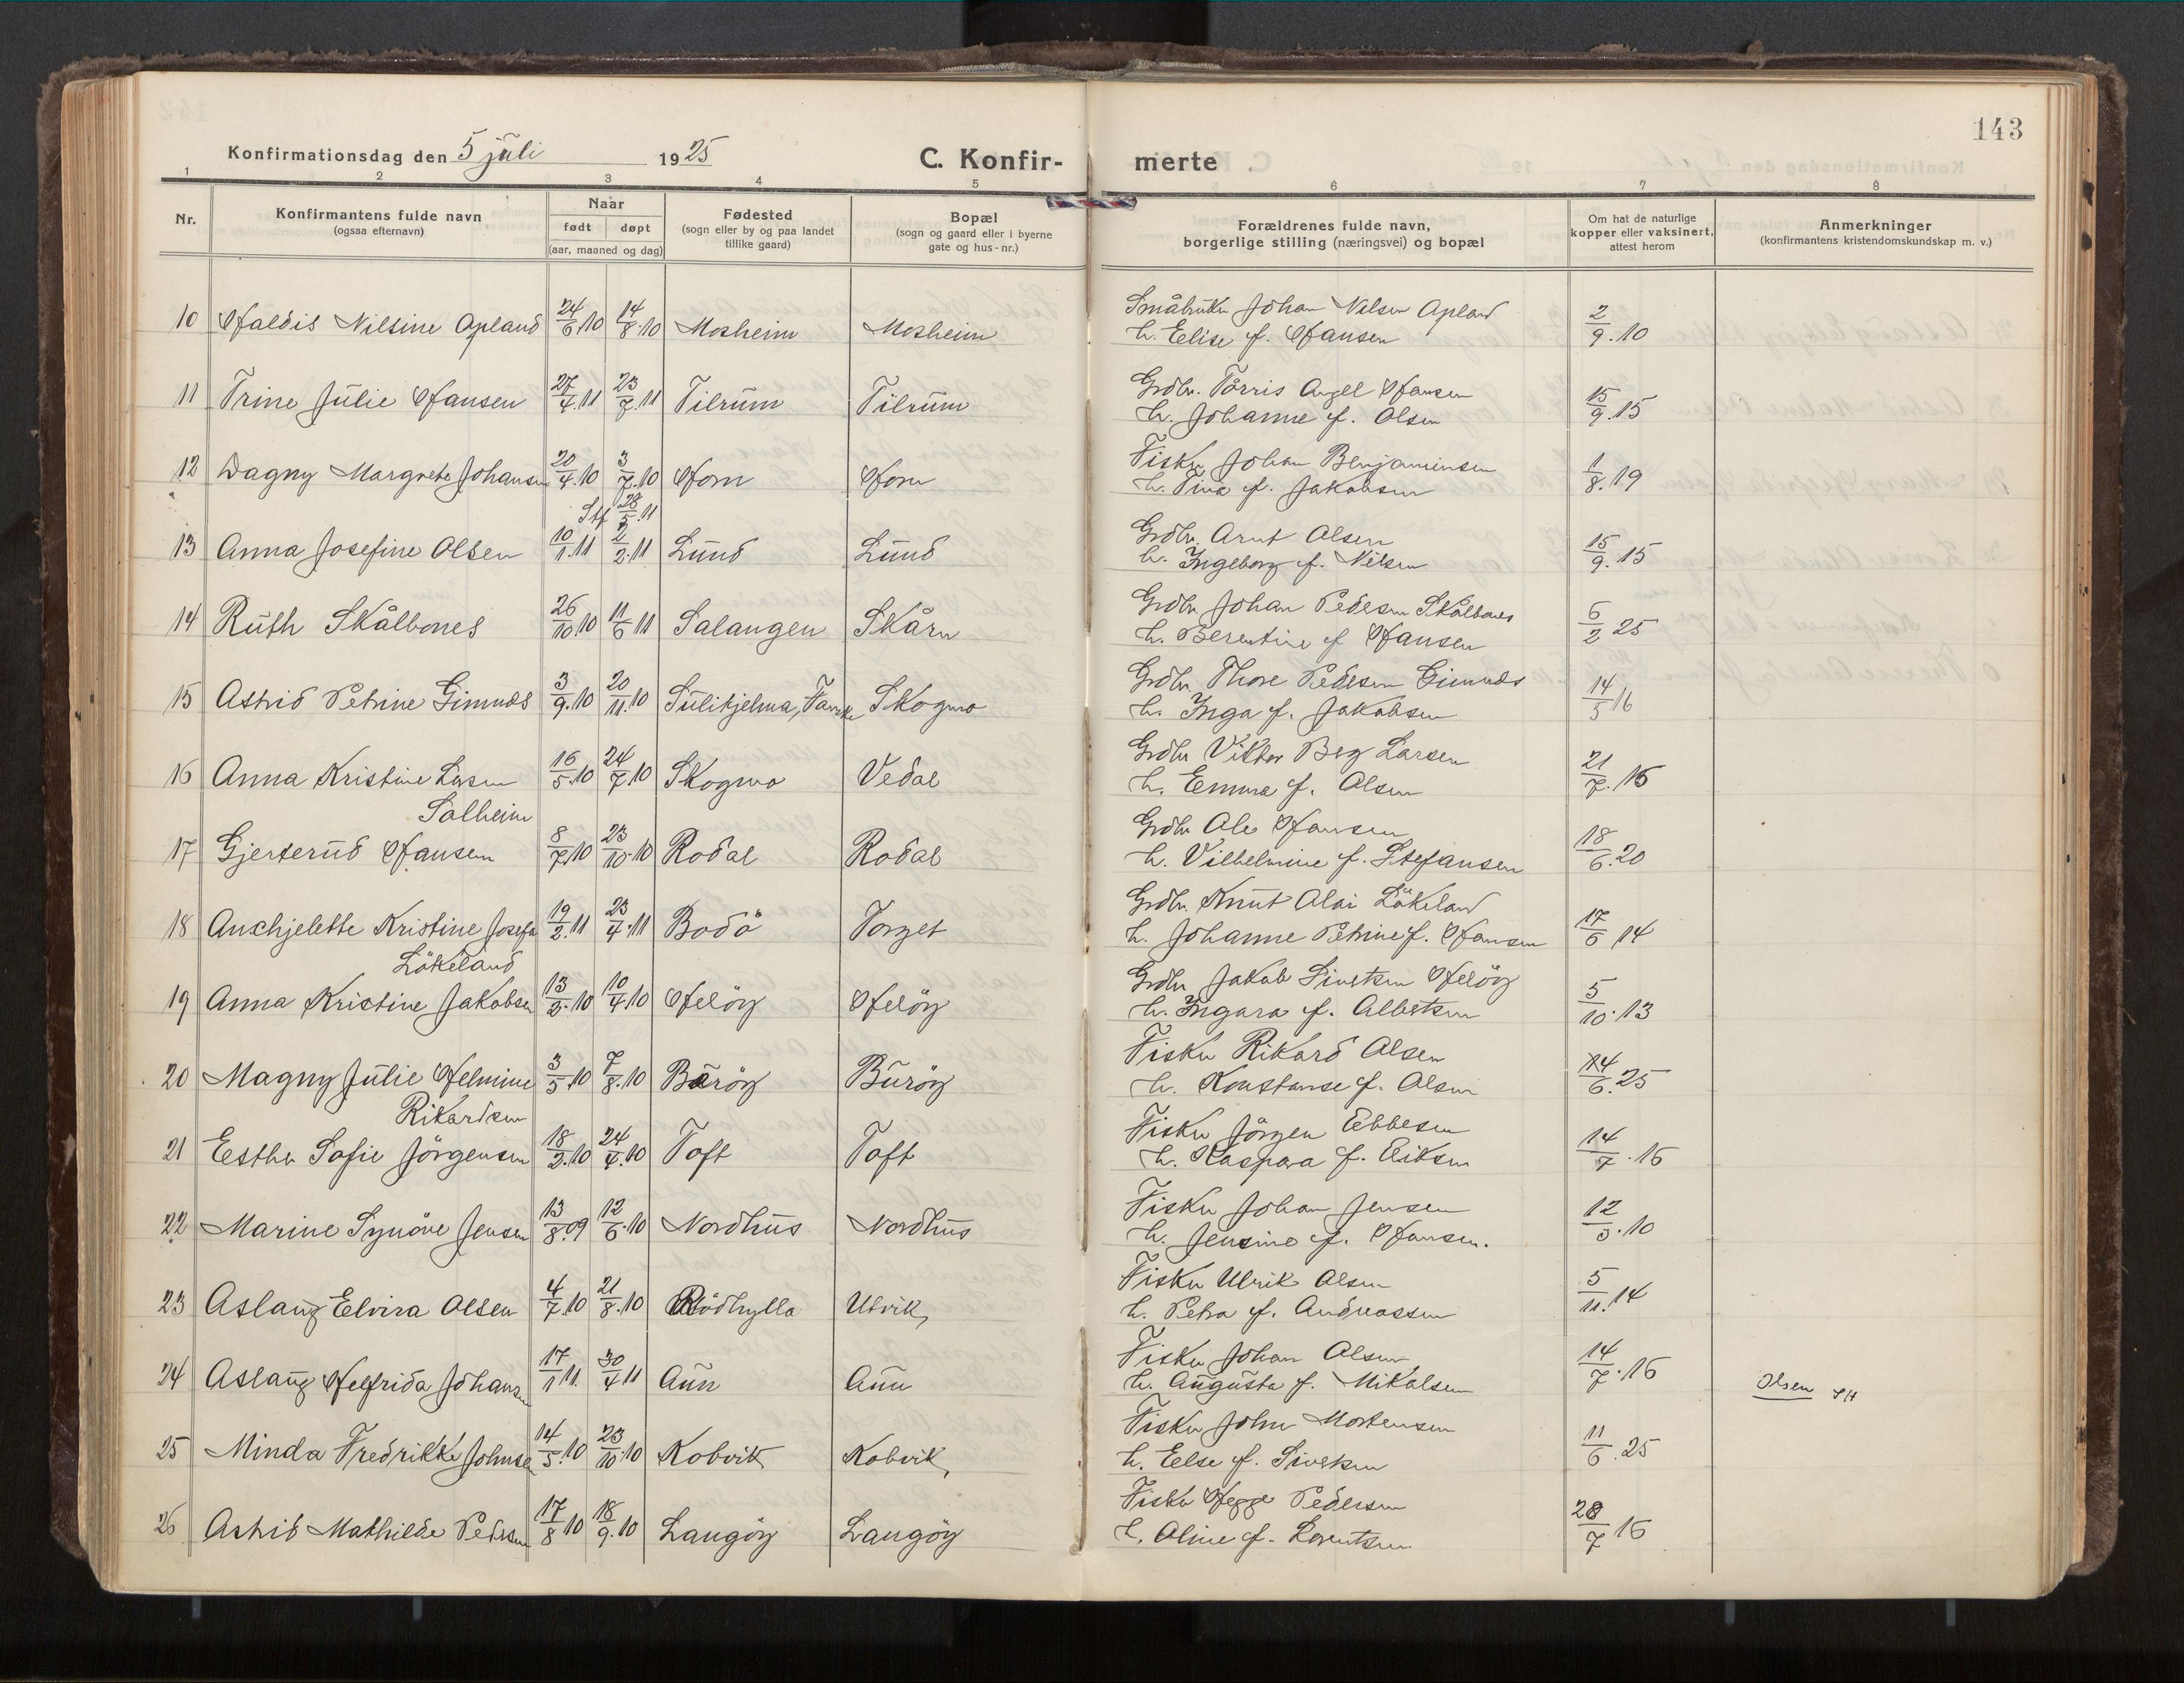 143
Konfirmationsdag den 5 juli 1925
C. Konfirmerte
1 2 3 4 5 6 7 8
Nr.
Konfirmantens fulde navn (ogsaa efternavn)
Naar født døpt (aar, maaned og dag)
Fødested (sogn eller by og paa landet tillike gaard)
Bopæl (sogn og gaard eller i byerne gate og hus-nr.)
Forældrenes fulde navn, borgerlige stilling (næringsvei) og bopæl
Om hat de naturlige kopper eller vaksinert, attest herom
Anmerkninger (konfirmantens kristendomskundskap m. v.)
10 Haldis Nilsine Apland 24/6.10 14/8.10 Mosheim Mosheim Småbruker Johan Nilsen Apland
h. Elise f. Hansen 2/9.10
11 Trine Julie Hansen 27/4.11 23/7.11 Tilrum Tilrum Grdbr. Tårris Angell Hansen
h. Johanne f. Olsen 15/9.15
12 Dagny Margrete Johansen 20/4.10 3/7.10 Horn Horn Fisker Johan Benjaminsen
Stf 28/5.11 h. Tina f. Jakobsen 1/8.19
13 Anna Josefine Olsen 10/1.11 2/2.11 Lund Lund Grdbr. Arnt Olsen
h. Ingeborg f. Nilsen 15/9.15
14 Ruth Skålbones 26/10.10 11/6 11 Salangen Skårn Grdbr Johan Pedersen Skålbones
h. Berentine f Hansen 6/2 25
15 Astrid Petrine Gimnds 3/9.10 20/11.10 Sulitjelma, Fauske Skogmo Grdbr. Thore Pedersen Gimnds
h. Inga f. Jakobsen 14/5 16
16 Anna Kristine Larsen 16/5.10 24/7.10 Skogmo Vedal Grdbr Viktor Berg Larsen
Solheim h. Emma f. Olsen 21/7.16
17 Gjertrud Hansen 8/7.10 23/10.10 Rodal Rodal Grdbr Ole Hansen
h. Vilhelmine f. Stefansen 18/6.20
18 Anchjelette Kristine Josefa 19/2.11 23/4.11 Bodö Torget Grdbr. Knut Olai Lökeland
Lökeland h. Johanne Petrine f. Hansen 17/6 14
19 Anna Kristine Jakobsen 13/2.10 10/4.10 Helöy Helöy Grdbr Jakob Sivertsen Helöy
h. Ingara f. Albertsen 5/10.13
20 Magny Julie Helmine 3/5.10 7/8.10 Buröy Buröy Fisker Rikard Olsen
Rikardsen h. Konstanse f. Olsen 14/6.25
21 Esther Sofie Jörgensen 18/2.10 24/4.10 Toft Toft Fisker Jörgen Ebbesen
h. Kaspara f. Eriksen 14/7.16
22 Marine Synöve Jensen 13/8.09 12/6.10 Nordhus Nordhus Fisker Johan Jensen
h. Jensine f. Hansen. 12/3.10
23 Aslaug Elvira Olsen 4/7.10 21/8.10 Rödhylla Ulvik Fisker Ulrik Olsen
h. Petra f. Andreassen 5/11.14
24 Aslaug Helfrida Johansen 17/1 11. 30/4 11 Aun Aun Fisker Johan Olsen
h. Augusta f. Mikalsen 14/7.16 Olsen SH
25 Minda Fredrikke Johnsen 14/5.10 23/10.10 Kobvik Kobvik Fisker John Mortensen
h. Else f. Sivertsen 11/6.25
26 Astrid Mathilde Pedersen 17/8 10 18/9.10 Langöy Langöy Fisker Hegge Pedersen
h. Oline f. Lorentsen 28/7 16